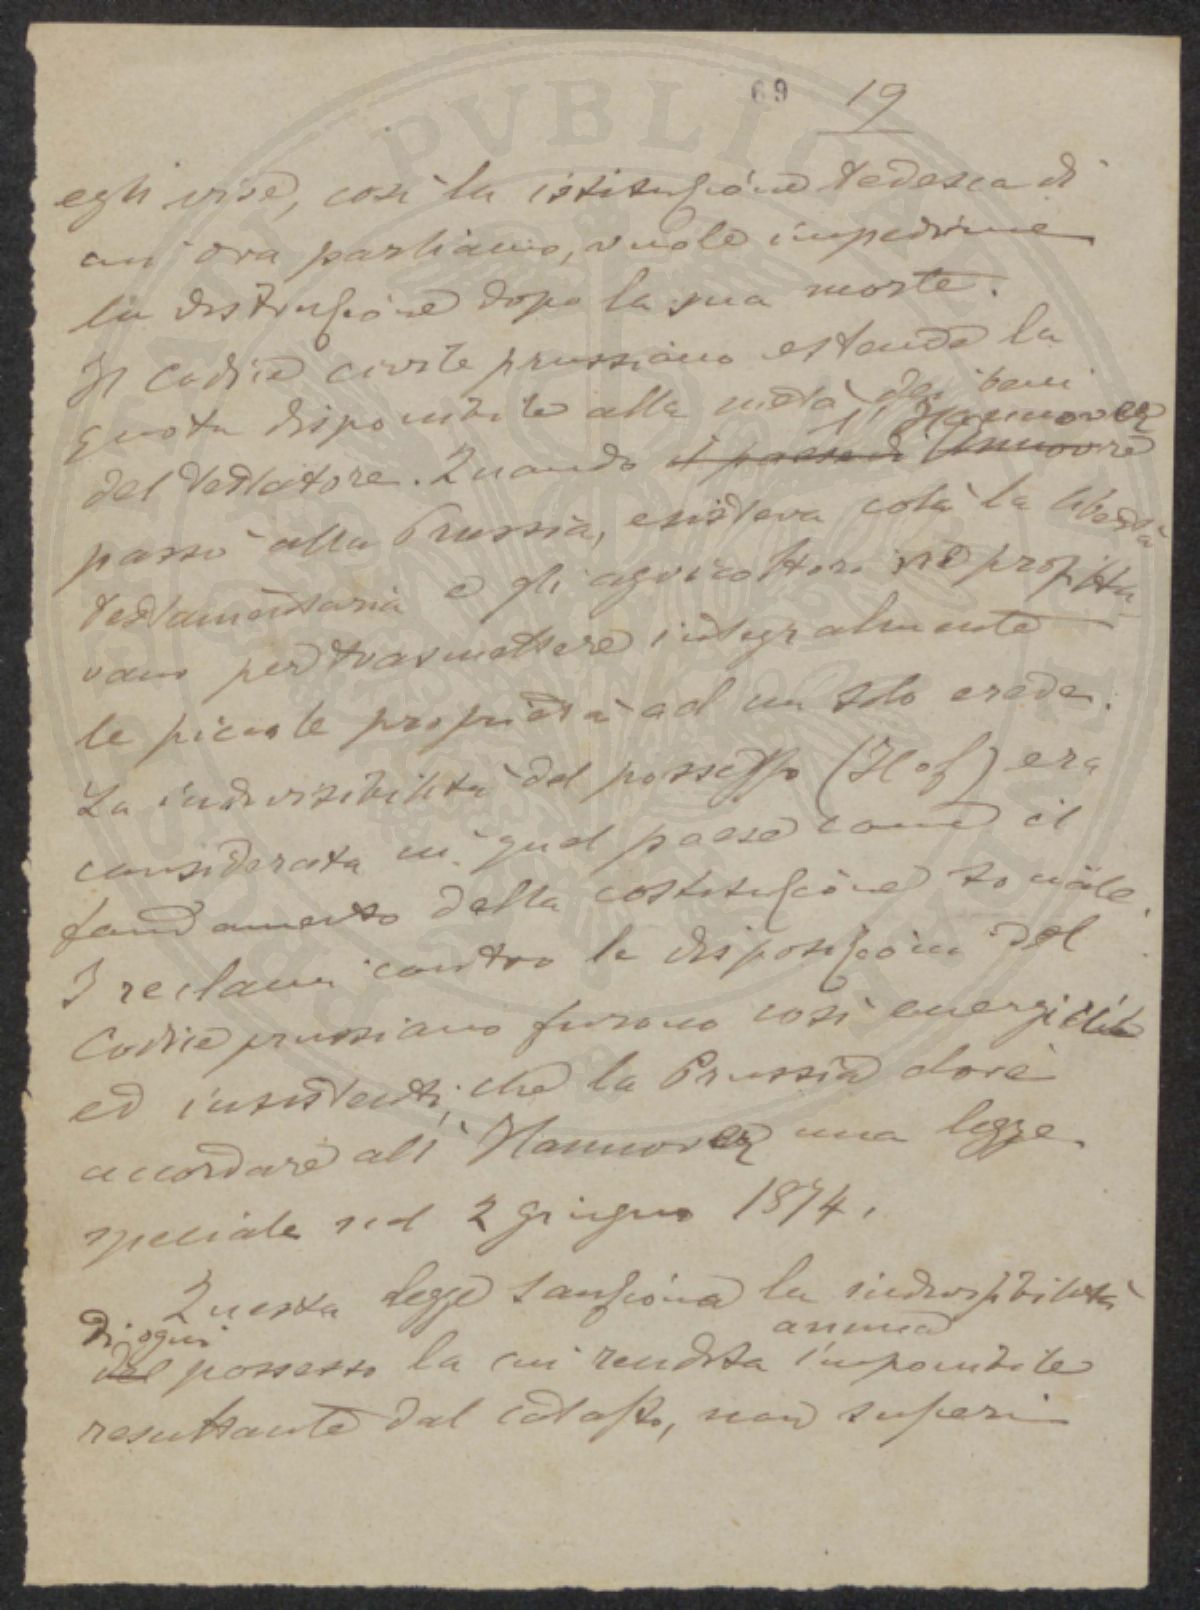 69 19
egli vive, così la istituzione tedesca di
cui ora parliamo, vuole impedirne
la distruzione dopo la sua morte.
Il Codice civile prussiano estende la
quota disponibile alla metà dei beni
l'Hannover
del testatore. Quando il paese di Annovre
passò alla Prussia, esisteva colà la libertà
testamentaria e gli agricoltori ne profitta
vano per trasmettere integralmente
le piccole proprietà ad un solo erede.
La indivisibilità del possesso (Hof) era
considerata in quel paese come il
fondamento della costituzione sociale.
I reclami contro le disposizioni del
Codice prussiano furono così energici
ed insistenti, che la Prussia dovè
accordare all'Hannover una legge
speciale nel 2 giugno 1874.
Questa legge sanziona la indivisibilità
di ogni annua
del possesso la cui rendita imponibile
resultante dal catasto, non superi